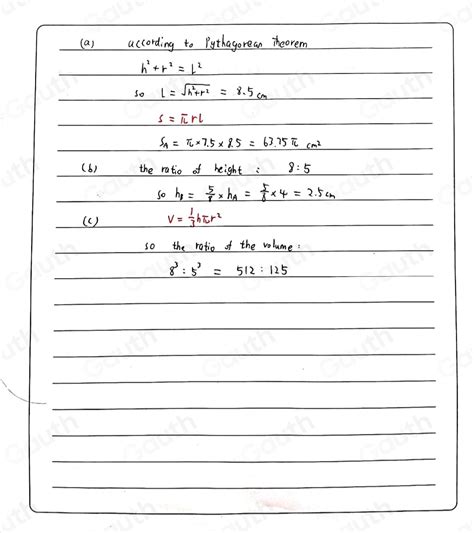 (a) according to Pythagorean theorem
h² + r² = L²
so L = √h²+r² = 8.5 cm
S = πrl
S_A = π × 7.5 × 8.5 = 63.75 π cm²
(b) the ratio of height : 8 : 5
so h_B = 5/8 × h_A = 5/8 × 4 = 2.5 cm
(c) V = 1/3 hπr²
so the ratio of the volume :
8³ : 5³ = 512 : 125